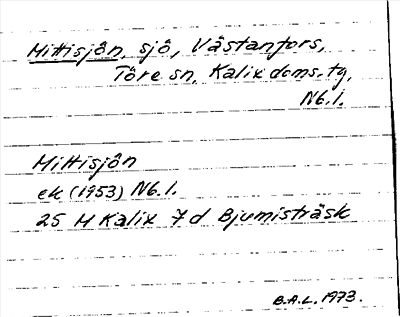 Mittisjön, sjö, Västanfors,
Töre sn, Kalix doms.tg,
Nb.l.
Mittisjön
ek (1953) Nb.l.
25 M Kalix 7d Bjumisträsk
B.A.L. 1973.